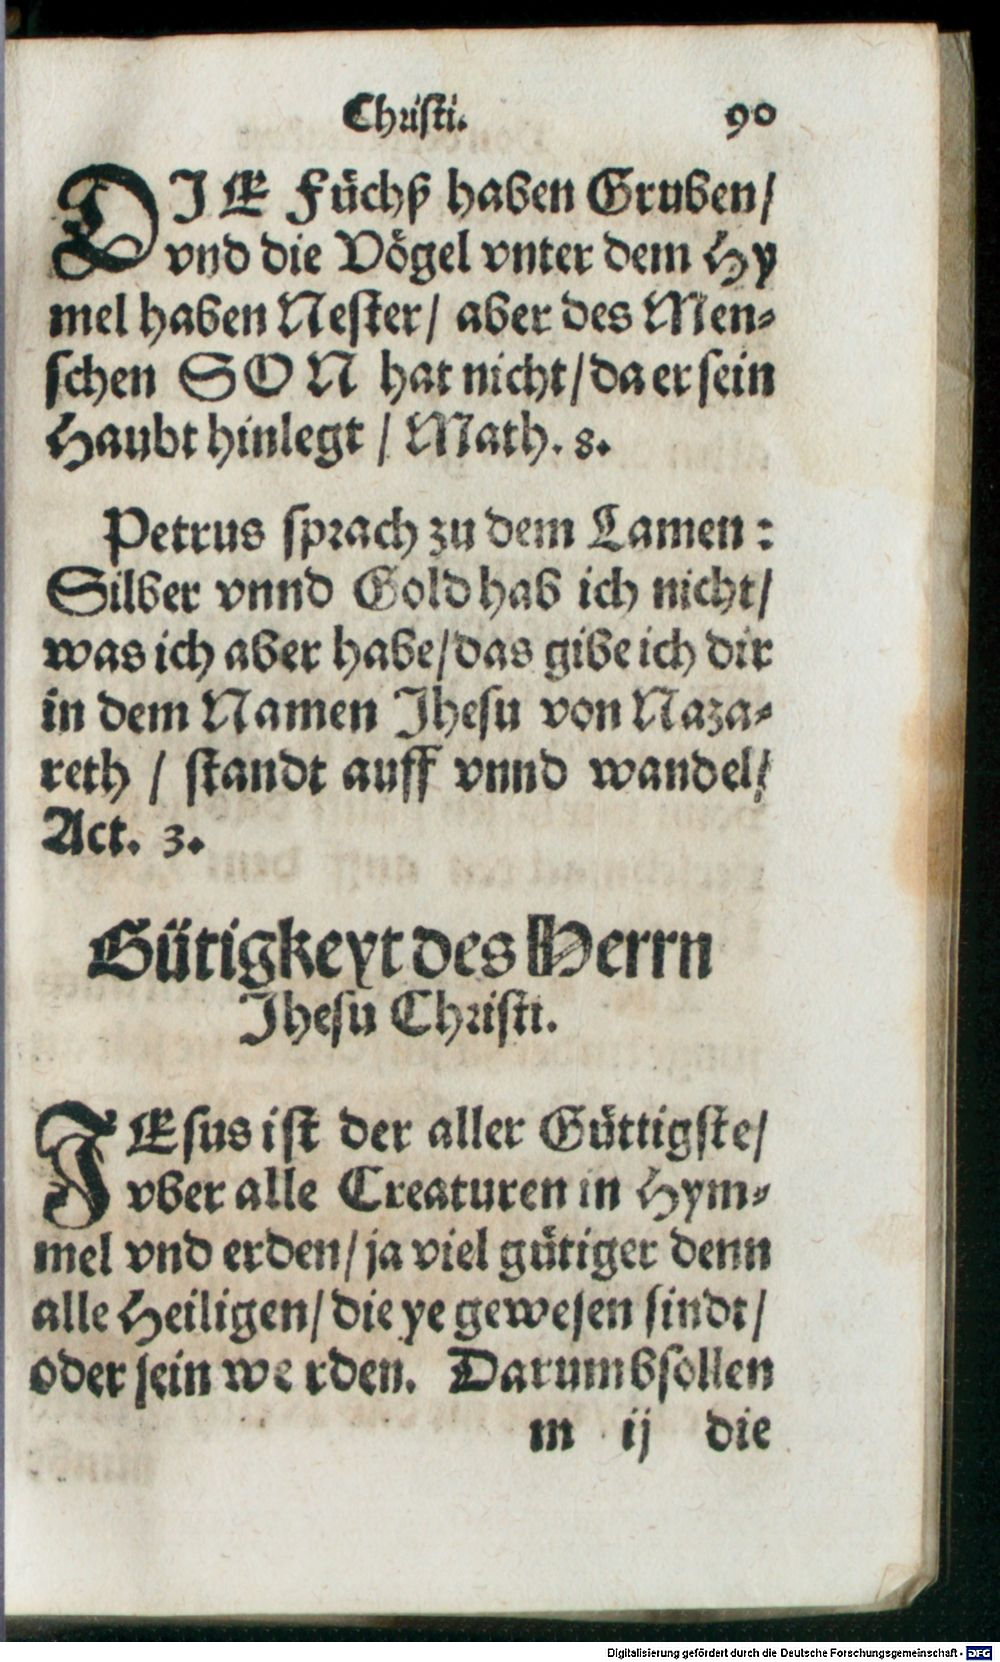 Christi. 90
DIE Füchß haben Gruben/
vnd die Vögel vnter dem Hy
mel haben Nester/ aber des Men-
schen SON hat nicht/ da er sein
Haubt hinlegt / Math. 8.
Petrus sprach zu dem Lamen :
Silber vnnd Gold hab ich nicht/
was ich aber habe/ das gibe ich dir
in dem Namen Jhesu von Naza-
reth / standt auff vnnd wandel/
Act. 3.
Gütigkeyt des Herrn
Jhesu Christi.
JEsus ist der aller Güttigste/
vber alle Creaturen in Hym-
mel vnd erden/ ja viel gütiger denn
alle Heiligen/ die ye gewesen sindt/
oder sein werden. Darumb sollen
m ij die
Digitalisierung gefördert durch die Deutsche Forschungsgemeinschaft - DFG